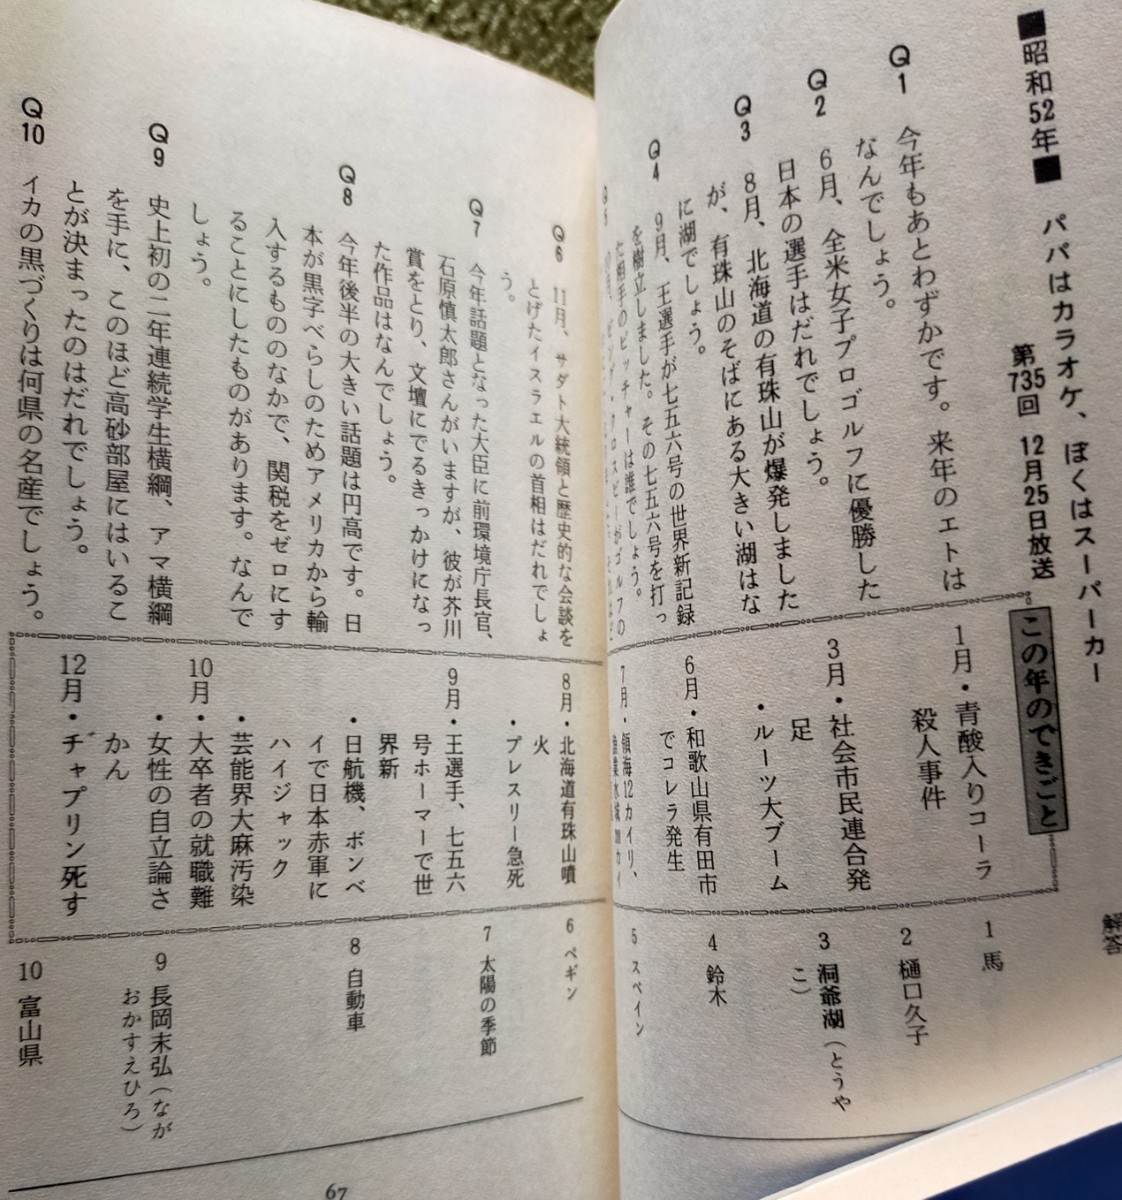 ■昭和52年■ パパはカラオケ、ぼくはスーパーカー
第735回 12月25日放送
Q1 今年もあとわずかです。来年のエトは
なんでしょう。
Q2 6月、全米女子プロゴルフに優勝した
日本の選手はだれでしょう。
Q3 8月、北海道の有珠山が爆発しました
が、有珠山のそばにある大きい湖はな
に湖でしょう。
Q4 9月、王選手が七五六号の世界新記録
を樹立しました。その七五六号を打っ
た相手のピッチャーは誰でしょう。
Q5
ビング・クロスビーがゴルフの
Q6 11月、サダト大統領と歴史的な会談を
とげたイスラエルの首相はだれでしょ
う。
Q7 今年話題となった大臣に前環境庁長官、
石原慎太郎さんがいますが、彼が芥川
賞をとり、文壇にでるきっかけになっ
た作品はなんでしょう。
Q8 今年後半の大きい話題は円高です。日
本が黒字べらしのためアメリカから輸
入するもののなかで、関税をゼロにす
ることにしたものがあります。なんで
しょう。
Q9 史上初の二年連続学生横綱、アマ横綱
を手に、このほど高砂部屋にはいるこ
とが決まったのはだれでしょう。
Q10 イカの黒づくりは何県の名産でしょう。
この年のできごと
1月・青酸入りコーラ
殺人事件
3月・社会市民連合発
足
・ルーツ大ブーム
6月・和歌山県有田市
でコレラ発生
7月・領海12カイリ、
8月・北海道有珠山噴
火
・プレスリー急死
9月・王選手、七五六
号ホーマーで世
界新
・日航機、ボンベ
イで日本赤軍に
ハイジャック
・芸能界大麻汚染
10月・大卒者の就職難
・女性の自立論さ
かん
12月・チャプリン死す
解答
1 馬
2 樋口久子
3 洞爺湖(とうや
こ)
4 鈴木
5 スペイン
6 ベギン
7 太陽の季節
8 自動車
9 長岡末弘(なが
おかすえひろ)
10 富山県
67